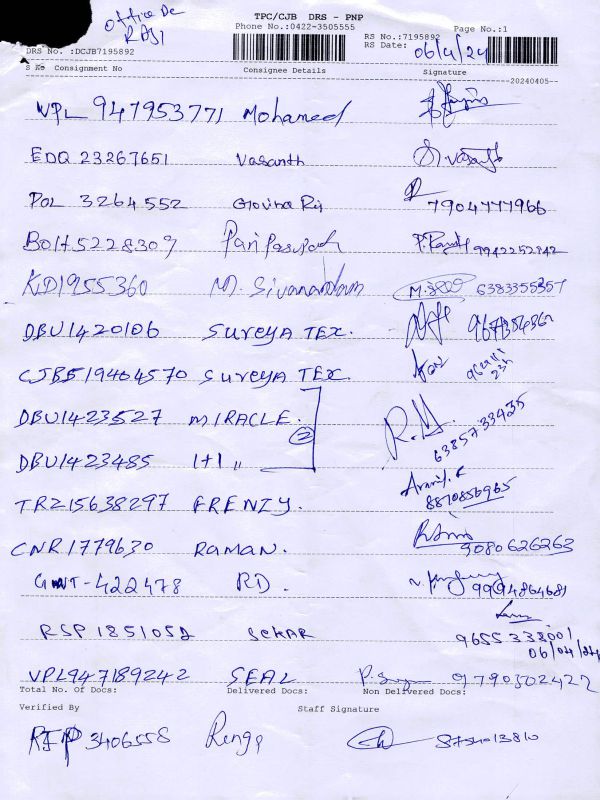 Office De
RAJI
TPC/CJB DRS - PNP
Phone No.:0422-3505555
Page No.:1
RS No.:7195892
RS Date: 06/4/24
DRS No. :DCJB7195892
S No Consignment No Consignee Details Signature
20240405
VPL 947953771 Mohamed
EDQ 23267651 Vasanth
POL 3264552 7904777966
BOI45228309 9942252842
KD1955360 M. Sivanandam 6383355357
DBU1420106 SUREYA TEX.
CJB519404570 SUREYA TEX.
DBU1423527 MIRACLE. R.M.
2
DBU1423485 1+1 〃 6385733935
TRZ15638297 FRENZY. 8870856965
CNR1779630 RAMAN. 9080626263
GWT-422478 RD. 9994864681
RSP 1851052 SEKAR 9655338001
06/04/24
VPL947189242 SEAL 9790302422
Total No. Of Docs: Delivered Docs: Non Delivered Docs:
Verified By Staff Signature
3406558 8754013810